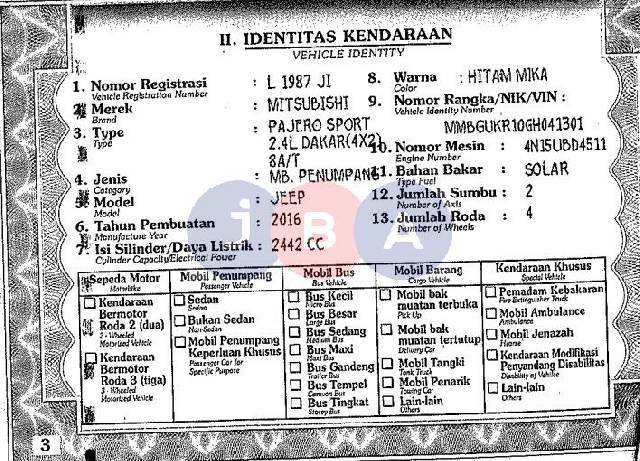 II. IDENTITAS KENDARAAN
VEHICLE IDENTITY
1. Nomor Registrasi : L 1987 JI
Vehicle Registration Number
2. Merek : MITSUBISHI
Brand
3. Type : PAJERO SPORT
Type 2.4L DAKAR(4X2)
8A/T
4. Jenis : MB. PENUMPANG
Category
5. Model : JEEP
Model
6. Tahun Pembuatan : 2016
Manufacture Year
7. Isi Silinder/Daya Listrik : 2442 CC
Cylinder Capacity/Electrical Power
8. Warna : HITAM MIKA
Color
9. Nomor Rangka/NIK/VIN :
Vehicle Identity Number
MMBGUKR10GH041301
10. Nomor Mesin : 4N15UBD4511
Engine Number
11. Bahan Bakar : SOLAR
Type Fuel
12. Jumlah Sumbu : 2
Number of Axis
13. Jumlah Roda : 4
Number of Wheels
iBA
Sepeda Motor
Motorbike
Kendaraan
Bermotor
Roda 2 (dua)
2 - Wheeled
Motorized Vehicle
Kendaraan
Bermotor
Roda 3 (tiga)
3 - Wheeled
Motorized Vehicle
Mobil Penumpang
Passenger Vehicle
Sedan
Sedan
Bukan Sedan
Non-Sedan
Mobil Penumpang
Keperluan Khusus
Passenger Car for
Specific Purpose
Mobil Bus
Bus Vehicle
Bus Kecil
Micro Bus
Bus Besar
Large Bus
Bus Sedang
Medium Bus
Bus Maxi
Maxi Bus
Bus Gandeng
Trailer Bus
Bus Tempel
Bus
Bus Tingkat
Storey Bus
Mobil Barang
Cargo Vehicle
Mobil bak
muatan terbuka
Pick Up
Mobil bak
muatan tertutup
Delivery Car
Mobil Tangki
Tank Truck
Mobil Penarik
Towing Car
Lain-lain
Others
Kendaraan Khusus
Special Vehicle
Pemadam Kebakaran
Fire Extinguisher Truck
Mobil Ambulance
Ambulance
Mobil Jenazah
Hearse
Kendaraan Modifikasi
Penyandang Disabilitas
Disability of Vehicle
Lain-lain
Others
3